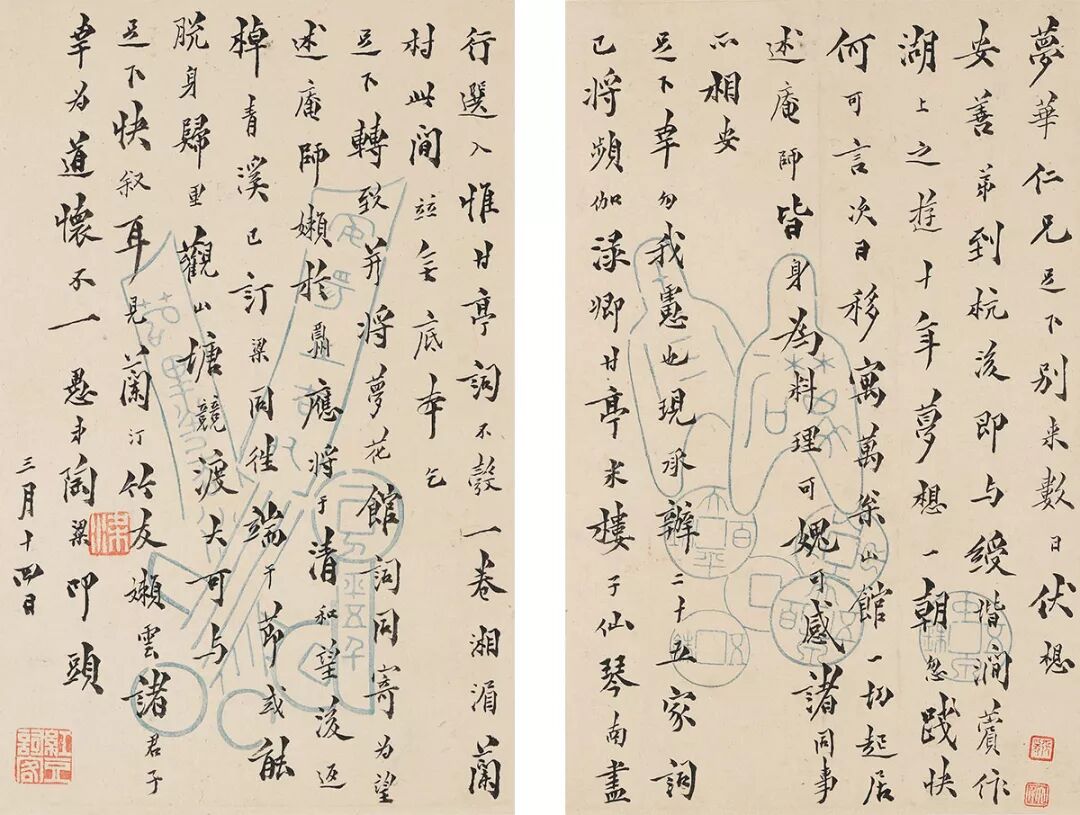 夢華仁兄足下別来數日伏想
安善弟到杭後即与綬堦澗薲作
湖上之遊十年夢想一朝忽踐快
何可言次日移寓萬枀山館一切起居
述庵師皆身為料理可媿可感諸同事
亦相安
足下幸勿我慮也現承辦二十五家詞
已将頻伽渌卿甘亭米樓子仙琴南盡
行選入惟甘亭詞不彀一卷湘湄蘭
村此間竝無底本乞
足下轉致并将夢花館詞同寄為望
述庵師嬾於應将于清和望後返
棹青溪已訂梁同往端午節或能
脱身歸里觀山塘競渡大可与
足下快叙耳見蘭汀竹友嬾雲諸君子
幸為道懷不一愚弟陶梁叩頭
三月十四日
紅豆詞客